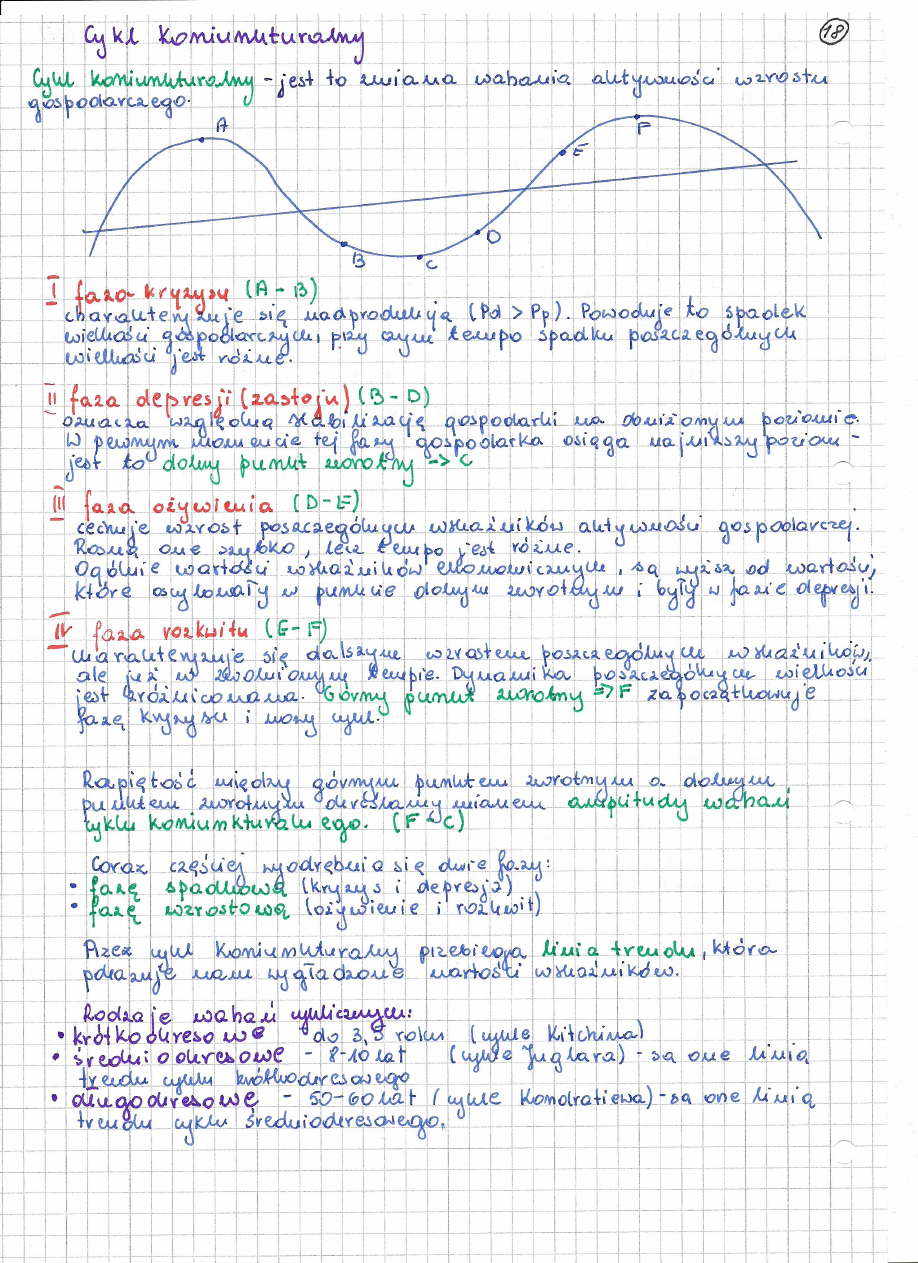 Cykl koniunkturalny
18
Cykl koniunkturalny - jest to zmiana wahania aktywności wzrostu
gospodarczego.
A
F
E
D
B
C
I faza kryzysu (A - B)
charakteryzuje się nadprodukcją (Pd > Pp). Powoduje to spadek
wielkości gospodarczych, przy czym tempo spadku poszczególnych
wielkości jest różne.
II faza depresji (zastoju) (B - D)
oznacza względną stabilizację gospodarki na obniżonym poziomie.
W pewnym momencie tej fazy gospodarka osiąga najniższy poziom -
jest to dolny punkt zwrotny -> C
III faza ożywienia (D - E)
cechuje wzrost poszczególnych wskaźników aktywności gospodarczej.
Rosną one szybko, lecz tempo jest różne.
Ogólnie wartości wskaźników ekonomicznych, są wyższe od wartości,
które oscylowały w punkcie dolnym zwrotnym i były w fazie depresji.
IV faza rozkwitu (E - F)
charakteryzuje się dalszym wzrostem poszczególnych wskaźników,
ale już w zwolnionym tempie. Dynamika poszczególnych wielkości
jest zróżnicowana. Górny punkt zwrotny => F zapoczątkowuje
fazę kryzysu i nowy cykl.
Rapiętość między górnym punktem zwrotnym a dolnym
punktem zwrotnym określamy mianem amplitudy wahań
cyklu koniunkturalnego. (F - C)
Coraz częściej wyodrębnia się dwie fazy:
• fazę spadkową (kryzys i depresja)
• fazę wzrostową (ożywienie i rozkwit)
Przez cykl koniunkturalny przebiega linia trendu, która
pokazuje nam wygładzone wartości wskaźników.
Rodzaje wahań cyklicznych:
• krótkookresowe do 3,5 roku (cykle Kitchina)
• średniookresowe - 8-10 lat (cykle Juglara) - są one linią
trendu cyklu krótkookresowego
• długookresowe - 50-60 lat (cykle Kondratiewa) - są one linią
trendu cyklu średniookresowego.